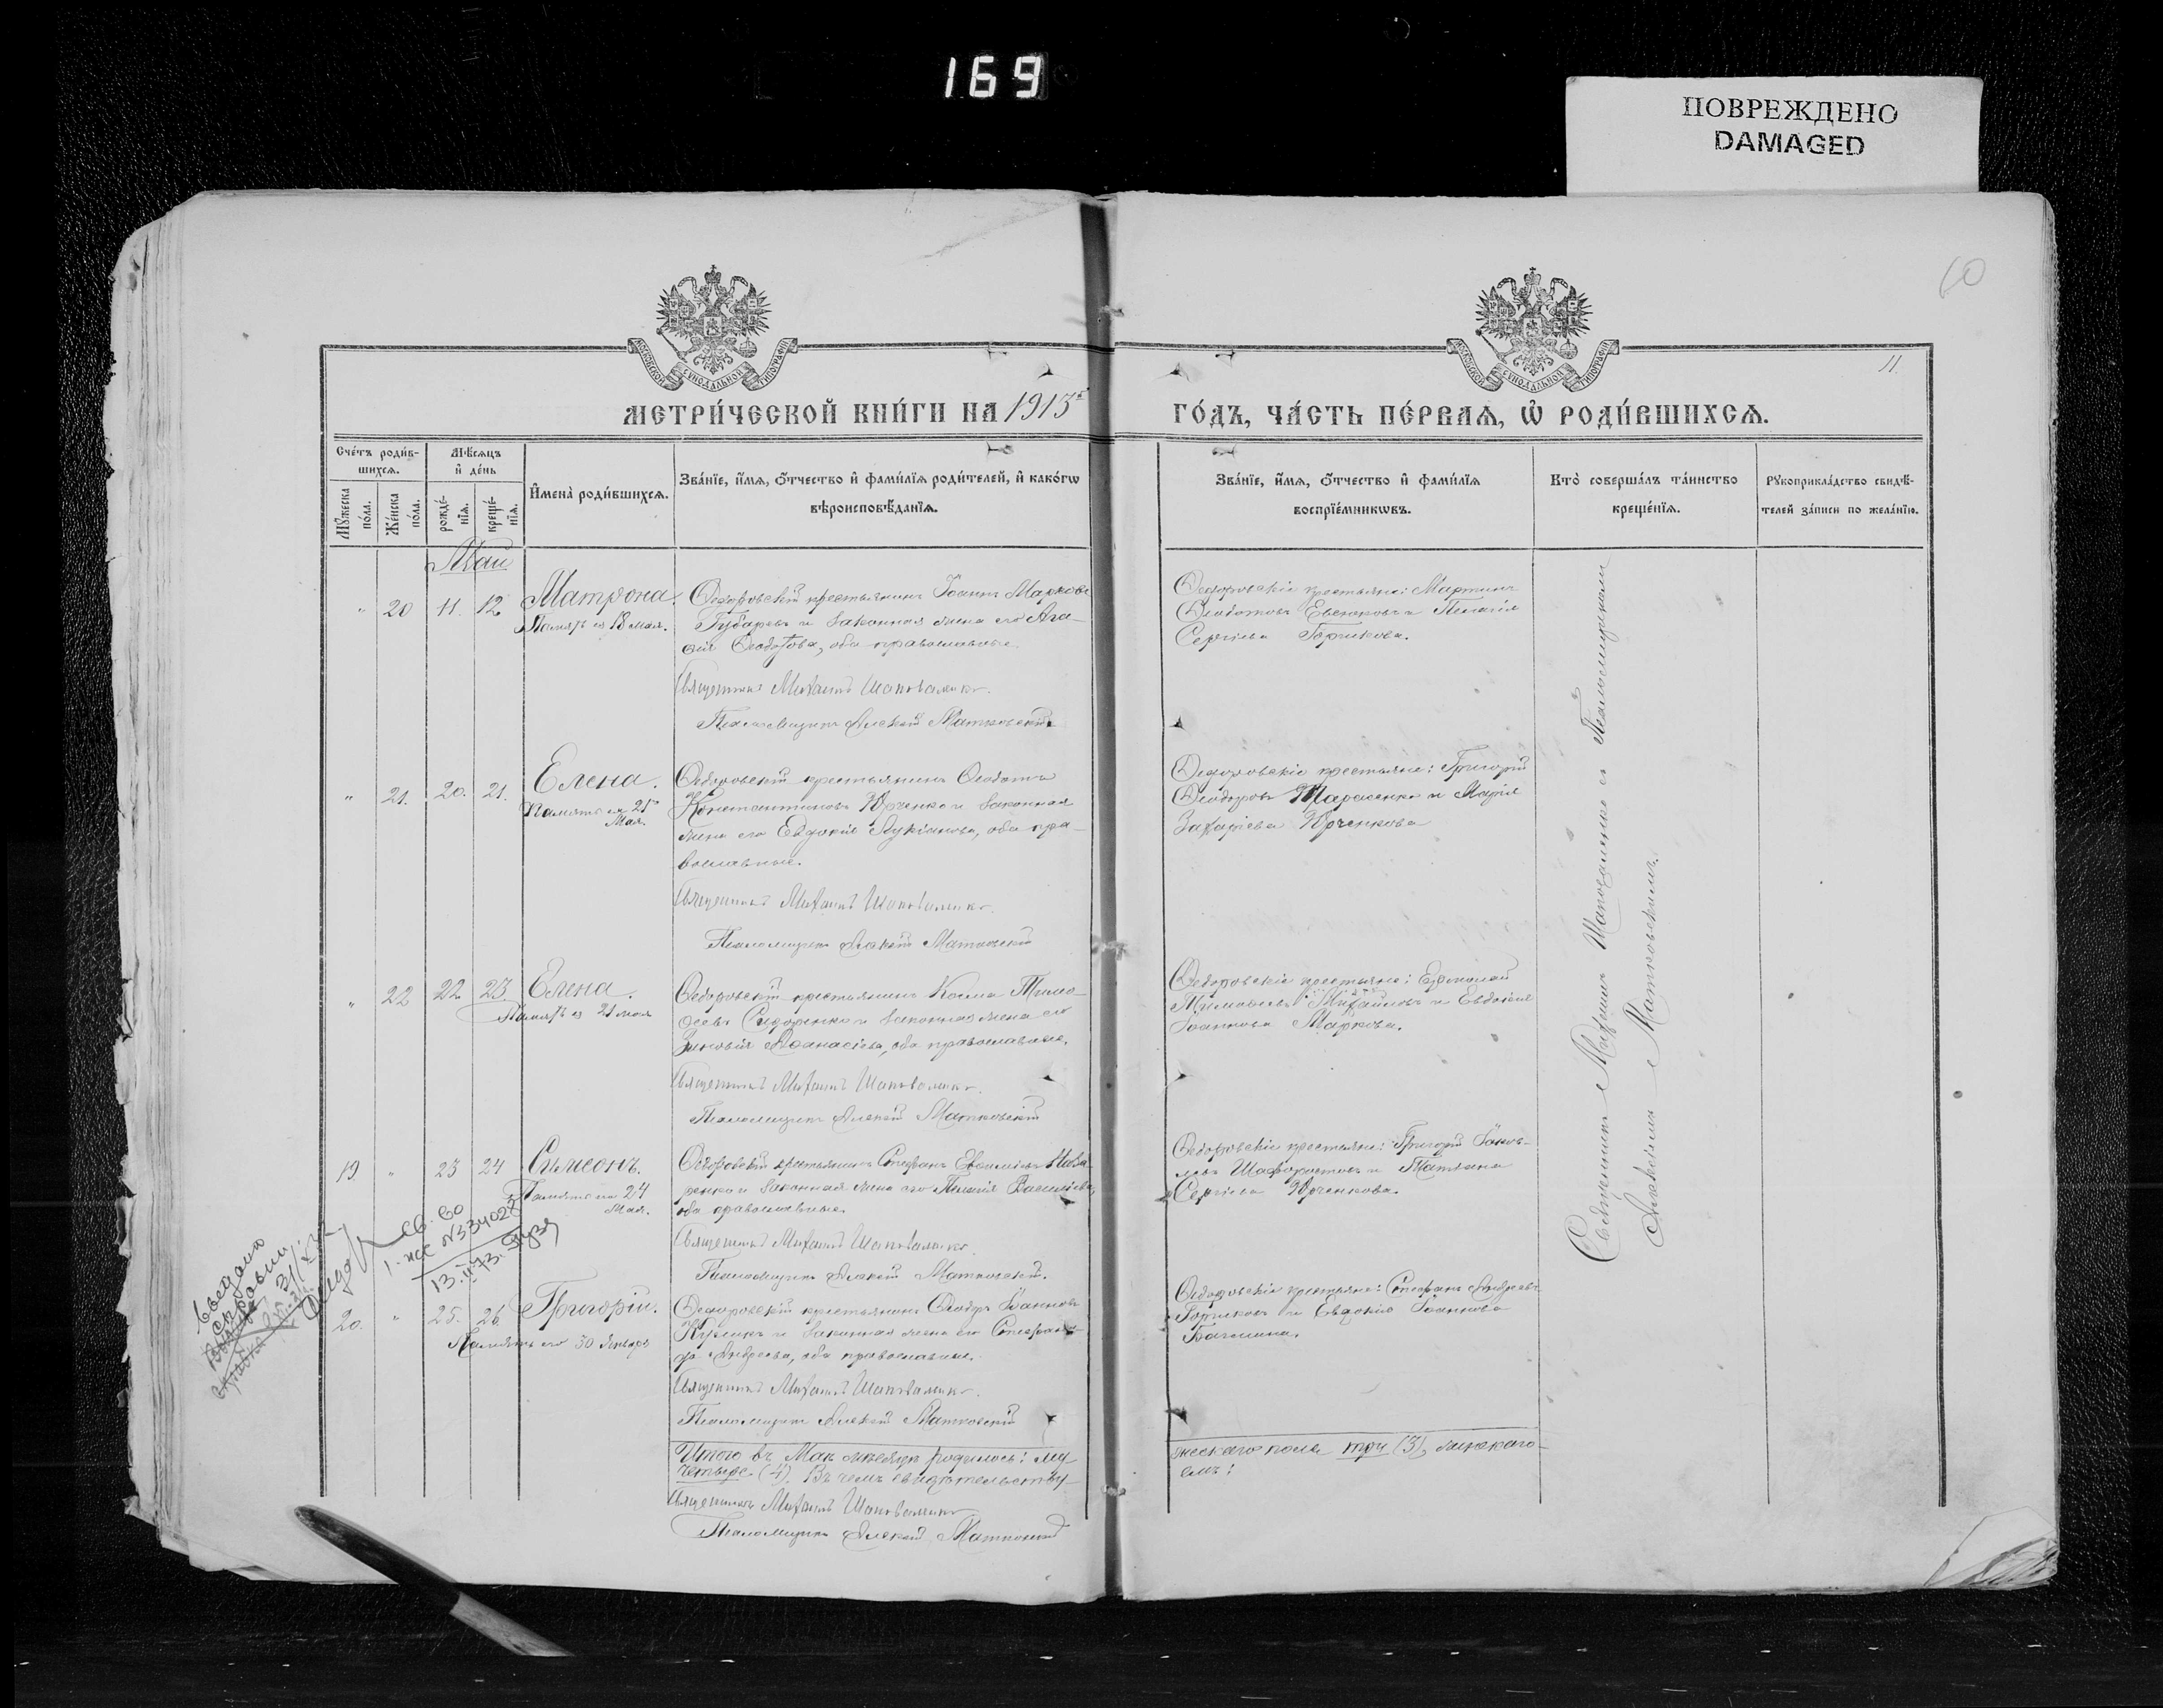 169
ПОВРЕЖДЕНО
DAMAGED
60
11.
МОСКОВСКОЙ СѴНОДАЛЬНОЙ ТИПОГРАФІИ
МОСКОВСКОЙ СѴНОДАЛЬНОЙ ТИПОГРАФІИ
МЕТРИ́ЧЕСКОЙ КНИ́ГИ НА 1913
ГО́ДЪ, ЧА́СТЬ ПЕ́РВАѦ, Ѡ҆ РОДИ́ВШИХСѦ.
Сче́тъ роди́в-
шихсѧ.
Мꙋ́жеска
по́ла.
Же́нска
по́ла.
Мѣ́сѧцъ
и҆ де́нь
рожде́-
нїѧ.
креще́-
нїѧ.
И҆мена̀ роди́вшихсѧ.
Зва́нїе, и҆́мѧ, ѻ҆́тчество и҆ фами́лїѧ роди́телей, и҆ како́гѡ
вѣроисповѣ́данїѧ.
Зва́нїе, и҆́мѧ, ѻ҆́тчество и҆ фами́лїѧ
воспрїе́мникѡвъ.
Кто̀ соверша́лъ та́инство
креще́нїѧ.
Рꙋкоприкла́дство свидѣ́-
телей за́писи по жела́нїю.
Май
" 20 11. 12 Матрона.
Память ея 18 мая.
Ѳедоровскій крестьянинъ Іоаннъ Марковъ
Губаревъ и законная жена его Ага-
ѳія Ѳеодотова, оба православные.
Священникъ Михаилъ Шаповаленко.
Псаломщикъ Алексій Матковскій
Ѳедоровскіе крестьяне: Мартинъ
Ѳеодотовъ и Пелагія
Сергіева Горчикова.
" 21. 20. 21. Елена.
Память ея 21го
Мая.
Ѳедоровскій крестьянинъ Ѳеодотъ
Константиновъ Юрченко и законная
жена его Евдокія Лукіанова, оба пра-
вославные.
Священникъ Михаилъ Шаповаленко.
Псаломщикъ Алексій Матковскій
Ѳедоровскіе крестьяне: Григорій
Ѳеодоровъ Тарасенко и Марія
Захаріева Юрченкова
" 22 22 23 Елена.
Память ея 21 мая
Ѳедоровскій крестьянинъ Косма Тимо-
ѳеевъ Сидоренко и законная жена его
Зиновія Аѳанасіева, оба православные.
Священникъ Михаилъ Шаповаленко.
Псаломщикъ Алексій Матковскій
Ѳедоровскіе крестьяне:
Тимоѳеевъ Михайловъ и Евдокія
Іоаннова Маркова.
19. " 23 24 Симеонъ.
Память его 24
Мая.
Ѳедоровскій крестьянинъ Стефанъ Евѳиміевъ
ренко и законная жена его Пелагія Василіева,
оба православные.
Священникъ Михаилъ Шаповаленко
Псаломщикъ Алексій Матковскій.
Ѳедоровскіе крестьяне: Григорій Іаков-
левъ Шафоростовъ и Татіана
Сергіева Юрченкова.
св. во
1-ЖС №334028
13.II.73.
20. " 25. 26. Григорій.
Память его 30 Января
Ѳедоровскій крестьянинъ Ѳеодоръ Іоанновъ
и законная жена его Стефани-
да Андреева, оба православные.
Священникъ Михаилъ Шаповаленко.
Псаломщикъ Алексій Матковскій
Ѳедоровскіе крестьяне: Стефанъ Андреевъ
Горчиковъ и Евдокія Іоаннова
Итого въ Маѣ мѣсяцѣ родилось: му-
жескаго пола три (3), женскаго
четыре (4). Въ чемъ свидѣтельству-
емъ:
Священникъ Михаилъ Шаповаленко
Псаломщикъ Алексій Матковскій
Священникъ Михаилъ Шаповаленко съ Псаломщикомъ
Алексіемъ Матковскимъ.